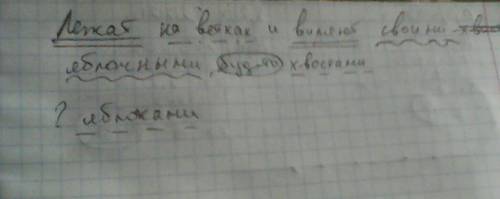 Лежат на ветках и виляют своими
яблочными, будто хвостами
? яблоками